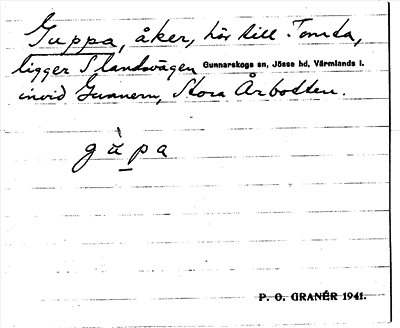 Guppa, åker, hör till Tomta,
ligger S landsvägen Gunnarskogs sn, Jösse hd, Värmlands l.
invid Gunnern, Stora Årbotten.
p a
P. O. GRANÉR 1941.